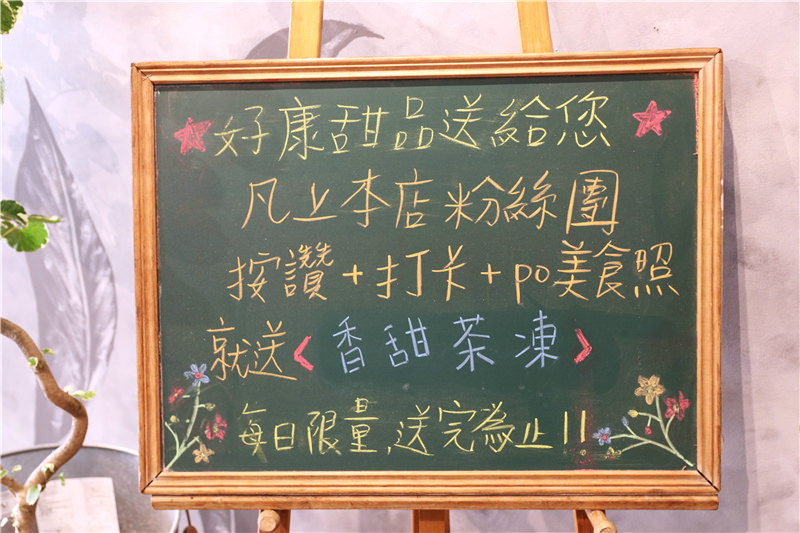 好康甜品送給您
凡上本店粉絲團
按讚+打卡+po美食照
就送<香甜茶凍>
每日限量,送完為止!!